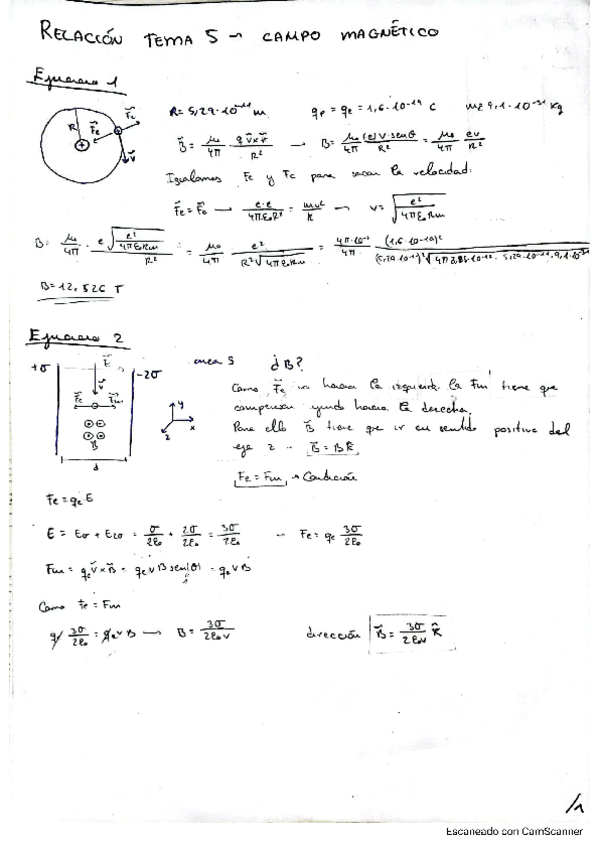 RELACCIÓN TEMA 5 ~ CAMPO MAGNÉTICO
Ejercicio 1
R = 5,29·10⁻¹¹ m qp = qe = 1,6·10⁻¹⁹ C m = 9,1·10⁻³¹ kg
R Fe Fc v
B = μ₀/4π · q v×r/R² → B = μ₀/4π (e)v·senθ/R² = μ₀/4π ev/R²
Igualamos Fe y Fc para sacar la velocidad:
→ e·e/4πε₀R² = mv²/R → v = √(e²/4πε₀Rm)
B = μ₀/4π · e√(e²/4πε₀Rm)/R² = μ₀/4π e²/R²√(4πε₀Rm) = 4π·10⁻⁷/4π (1,6·10⁻¹⁹)²
B = 12,526 T
Ejercicio 2
+σ -2σ area S ¿B?
Fe v Fm B d
y x z
Como Fe va hacia la izquierda la Fm tiene que
compensar yendo hacia la derecha.
Para ello B tiene que ir en sentido positivo del
eje z B = B k
Fe = Fm → Condición
Fe = qe E
E = Eσ + E2σ = σ/2ε₀ + 2σ/2ε₀ = 3σ/2ε₀ Fe = qe 3σ/2ε₀
Fm = qe v×B = qe v B sen(θ) = qe v B
Como Fe = Fm
q 3σ/2ε₀ = qe v B → B = 3σ/2ε₀v dirección B = 3σ/2ε₀v k
/1
Escaneado con CamScanner